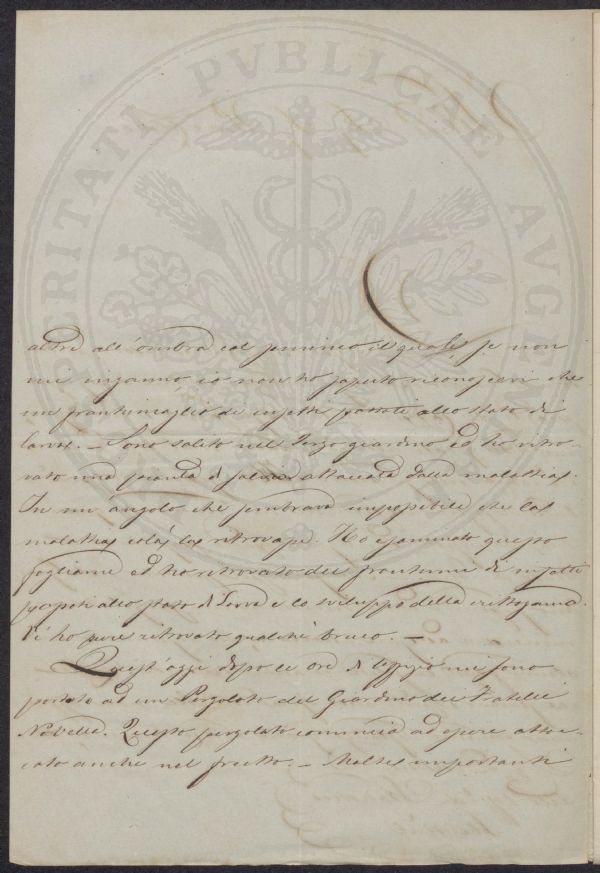 PROSPERITATI PVBLICAE AVGENDAE
altre all'ombra col il quale se non
mi inganno, io non ho saputo riconoscervi che
un frantumaglio di insetti passati allo stato di
larva. — Sono salito nel Terzo giardino ed ho ritro-
vato una pianta di salvia attaccata dalla malattia.
In un angolo che sembrava impossibile che la
malattia colà la ritrovassi. Ho esaminato questo
fogliame ed ho ritrovato dei frantumi di insetti
passati allo stato di larva e lo sviluppo della crittogama.
Vi ho pure ritrovato qualche bruco. —
Quest'oggi dopo le ore di Uffizio mi sono
portato ad un Pergolato del Giardino dei Fratelli
Novella. Questo pergolato comincia ad essere attac-
cato anche nel frutto. — Molti importanti